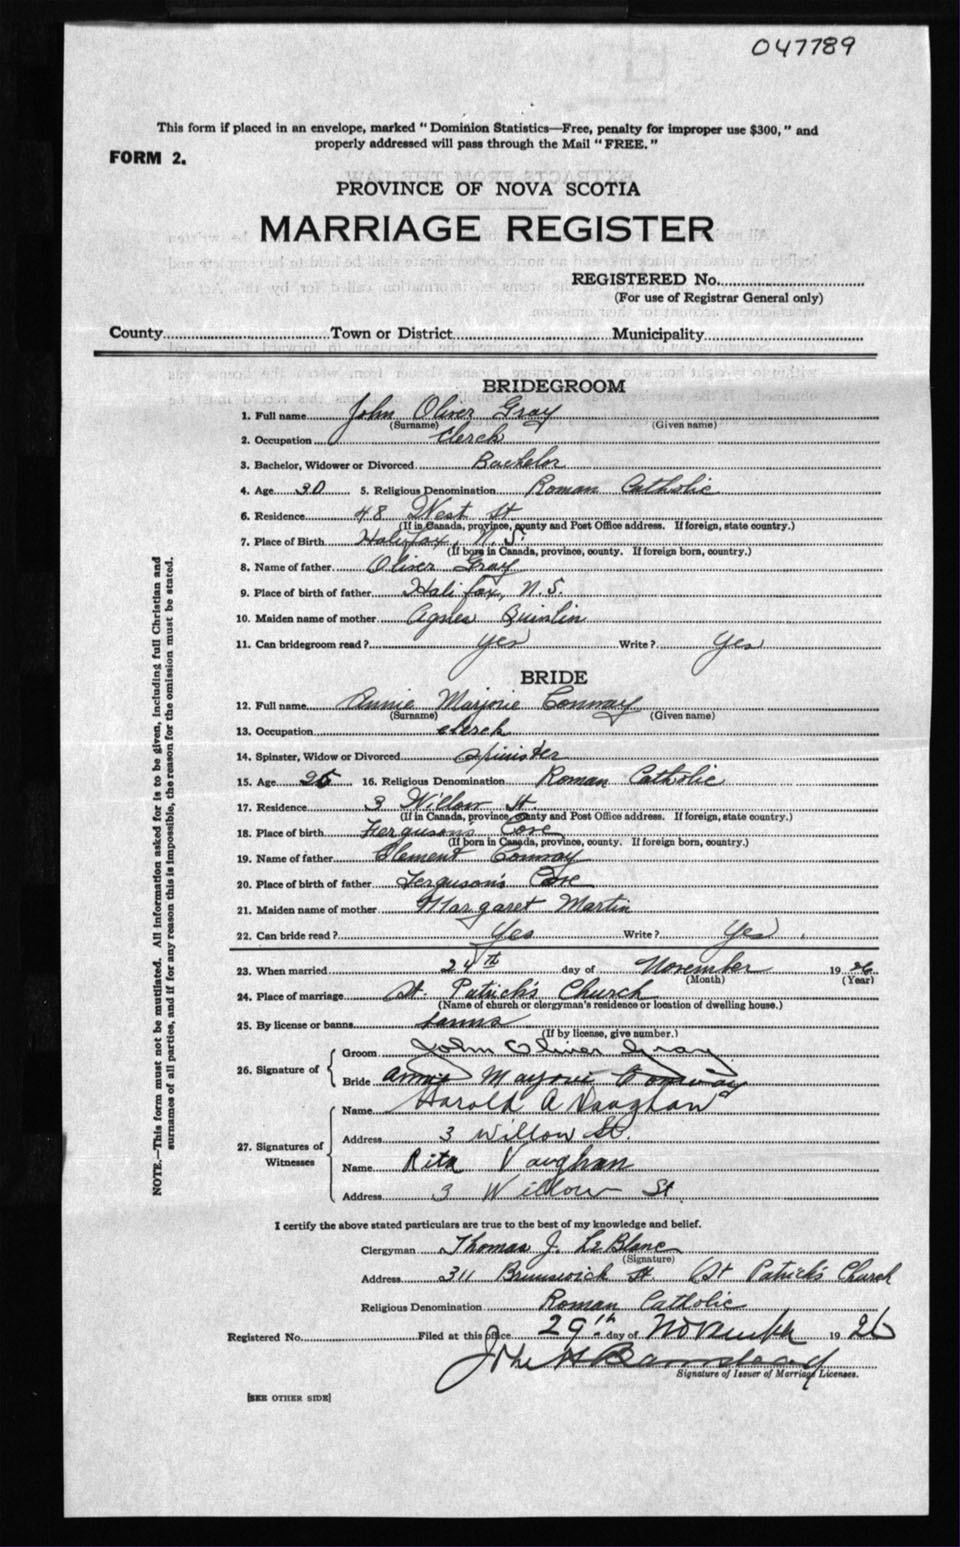 047789
This form if placed in an envelope, marked "Dominion Statistics—Free, penalty for improper use $300," and
properly addressed will pass through the Mail "FREE."
FORM 2.
PROVINCE OF NOVA SCOTIA
MARRIAGE REGISTER
REGISTERED No.
(For use of Registrar General only)
County Town or District Municipality
BRIDEGROOM
1. Full name John Oliver Gray
(Surname) (Given name)
2. Occupation Clerck
3. Bachelor, Widower or Divorced Bachelor
4. Age 30 5. Religious Denomination Roman Catholic
6. Residence 48 West St
(If in Canada, province, county and Post Office address. If foreign, state country.)
7. Place of Birth Halifax, N.S.
(If born in Canada, province, county. If foreign born, country.)
8. Name of father Oliver Gray
9. Place of birth of father Halifax, N.S.
10. Maiden name of mother Agnes Quinlin
11. Can bridegroom read? yes Write? yes
BRIDE
12. Full name Annie Marjorie Conway
(Surname) (Given name)
13. Occupation clerck
14. Spinster, Widow or Divorced spinister
15. Age 25 16. Religious Denomination Roman Catholic
17. Residence 3 Willow St
(If in Canada, province, county and Post Office address. If foreign, state country.)
18. Place of birth Ferguson's Cove
(If born in Canada, province, county. If foreign born, country.)
19. Name of father Clement Conway
20. Place of birth of father Ferguson's Cove
21. Maiden name of mother Margaret Martin
22. Can bride read? Yes Write? Yes
23. When married 24th day of November 19 26
(Month) (Year)
24. Place of marriage St. Patrick's Church
(Name of church or clergyman's residence or location of dwelling house.)
25. By license or banns
(If by license, give number.)
26. Signature of
Groom John Oliver Gray
Bride Annie Marjorie Conway
27. Signatures of Witnesses
Name Harold A Vaughan
Address 3 Willow St.
Name Rita Vaughan
Address 3 Willow St.
I certify the above stated particulars are true to the best of my knowledge and belief.
Clergyman Thomas J. LeBlanc
(Signature)
Address 311 Brunswick St. St Patrick's Church
Religious Denomination Roman Catholic
Registered No. Filed at this office 29th day of November 19 26
John Barnstead
Signature of Issuer of Marriage Licenses.
[SEE OTHER SIDE]
NOTE.—This form must not be mutilated. All information asked for is to be given, including full Christian and
surnames of all parties, and if for any reason this is impossible, the reason for the omission must be stated.